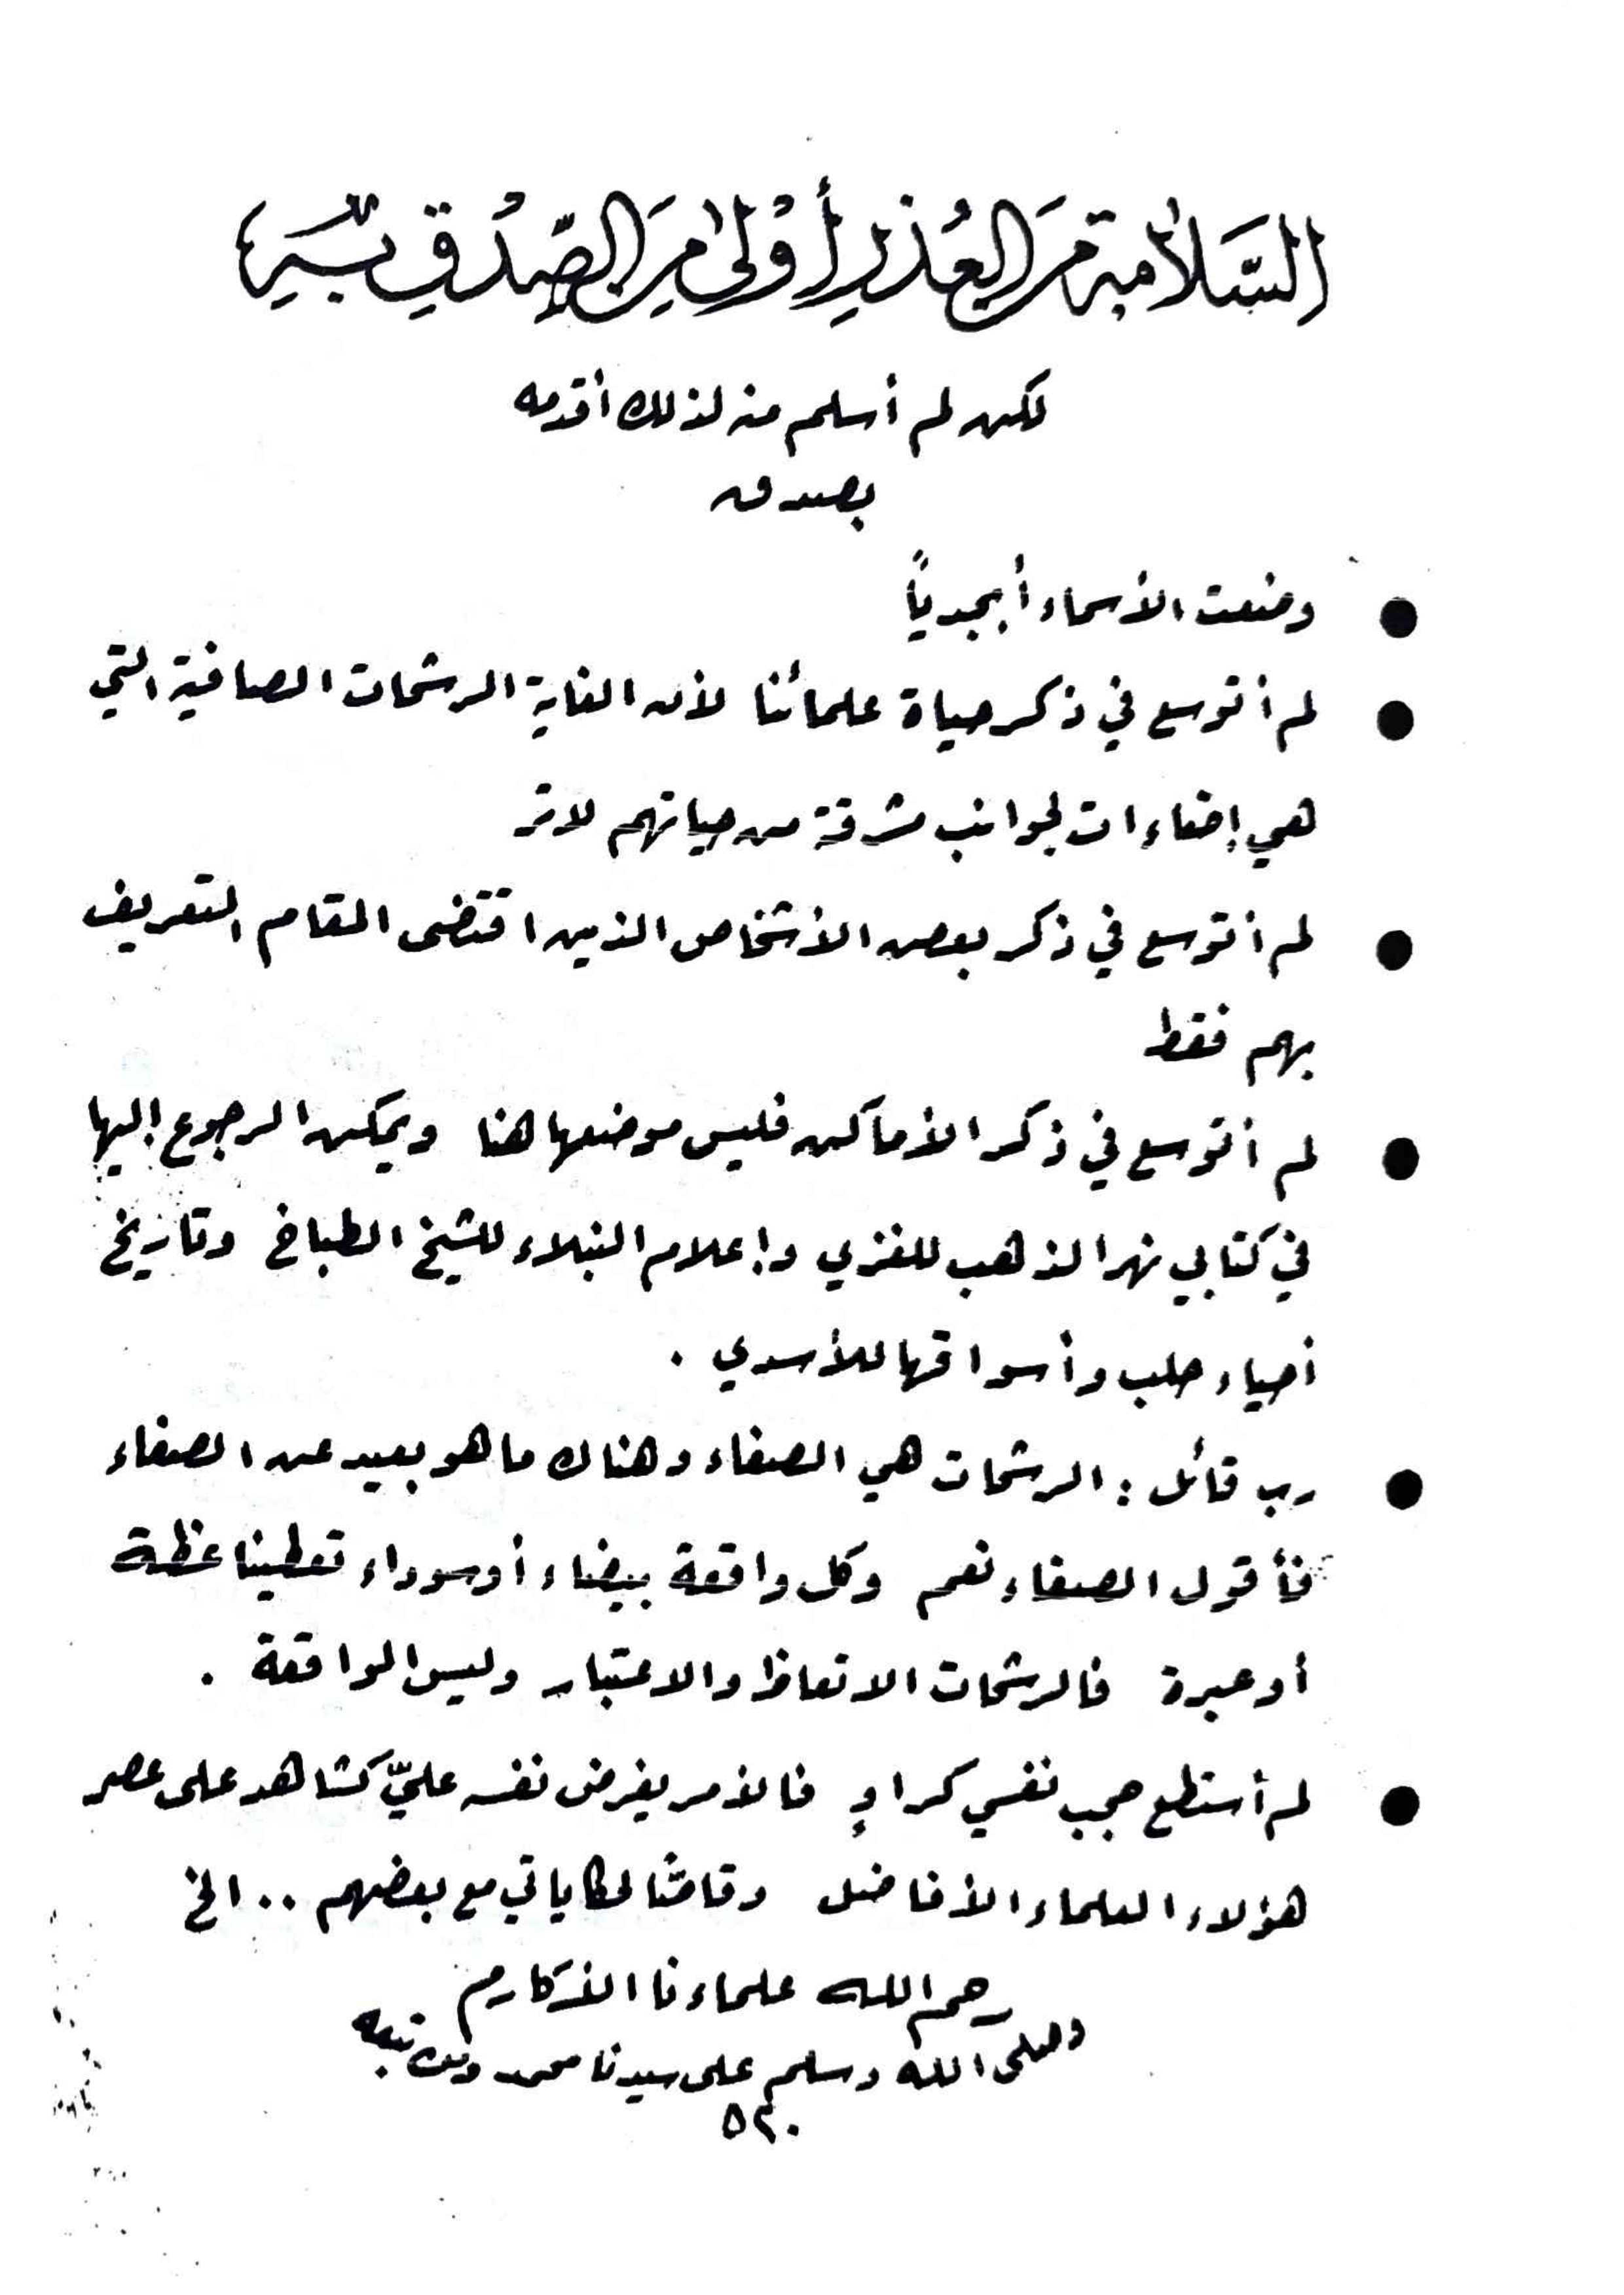 السَّلَامة مِنَ العُذرِ أَوْلى مِنَ الصِّدْقِ بِهِ
لكن لم أسلم منه لذلك أقدمه
بصدق
● وضعت الأسماء أبجدياً
● لم أتوسع في ذكر حياة علمائنا لأن الغاية الرشحات الصافية التي
هي إضاءات لجوانب مشرقة من حياتهم
● لم أتوسع في ذكر بعض الأشخاص الذين اقتضى المقام التعريف
بهم فقط
● لم أتوسع في ذكر الأماكن فليس موضعها هنا ويمكن الرجوع إليها
في كتابي نهر الذهب للغزي وإعلام النبلاء للشيخ الطباخ وتاريخ
أحياء حلب وأسواقها للأسدي .
● رب قائل : الرشحات هي الصفاء وهناك ما هو بعيد عن الصفاء
فأقول الصفاء نعم وكل واقعة بيضاء أو سوداء تعطينا عظة
أو عبرة فالرشحات الاتعاظ والاعتبار وليس الواقعة .
● لم أستطع حجب نفسي كراوٍ فالأمر يفرض نفسه عليّ كشاهد على عصر
هؤلاء العلماء الأفاضل وقاصّاً لحكاياتي مع بعضهم .. الخ
رحم الله علماءنا الأكارم
وصلى الله وسلم على سيدنا محمد